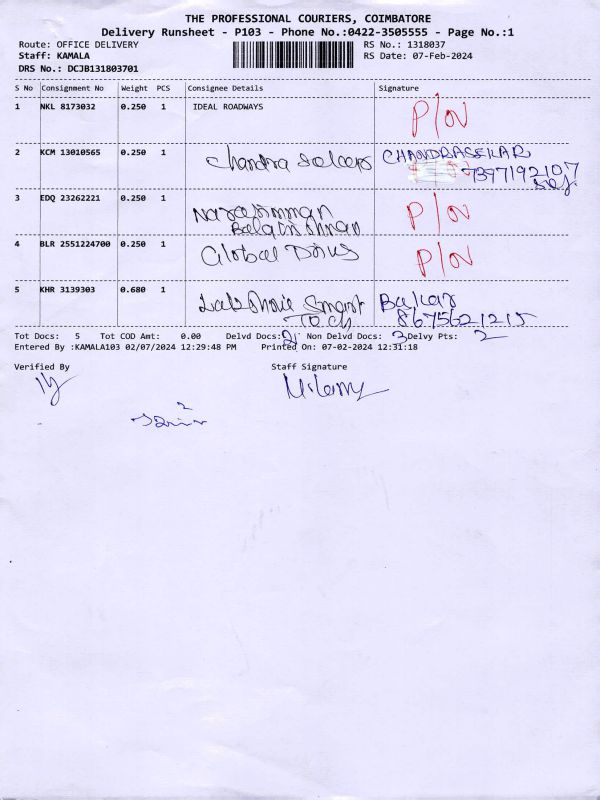 THE PROFESSIONAL COURIERS, COIMBATORE
Delivery Runsheet - P103 - Phone No.:0422-3505555 - Page No.:1
Route: OFFICE DELIVERY
Staff: KAMALA
DRS No.: DCJB131803701
RS No.: 1318037
RS Date: 07-Feb-2024
S No Consignment No Weight PCS Consignee Details Signature
1 NKL 8173032 0.250 1 IDEAL ROADWAYS P/N
2 KCM 13010565 0.250 1 Chandra CHANDRASEKAR
7397192107
3 EDQ 23262221 0.250 1 P/N
4 BLR 2551224700 0.250 1 Global P/N
5 KHR 3139303 0.680 1 Smart
8675621215
Tot Docs: 5 Tot COD Amt: 0.00 Delvd Docs: 2 Non Delvd Docs: 3 Delvy Pts: 2
Entered By :KAMALA103 02/07/2024 12:29:48 PM Printed On: 07-02-2024 12:31:18
Verified By Staff Signature